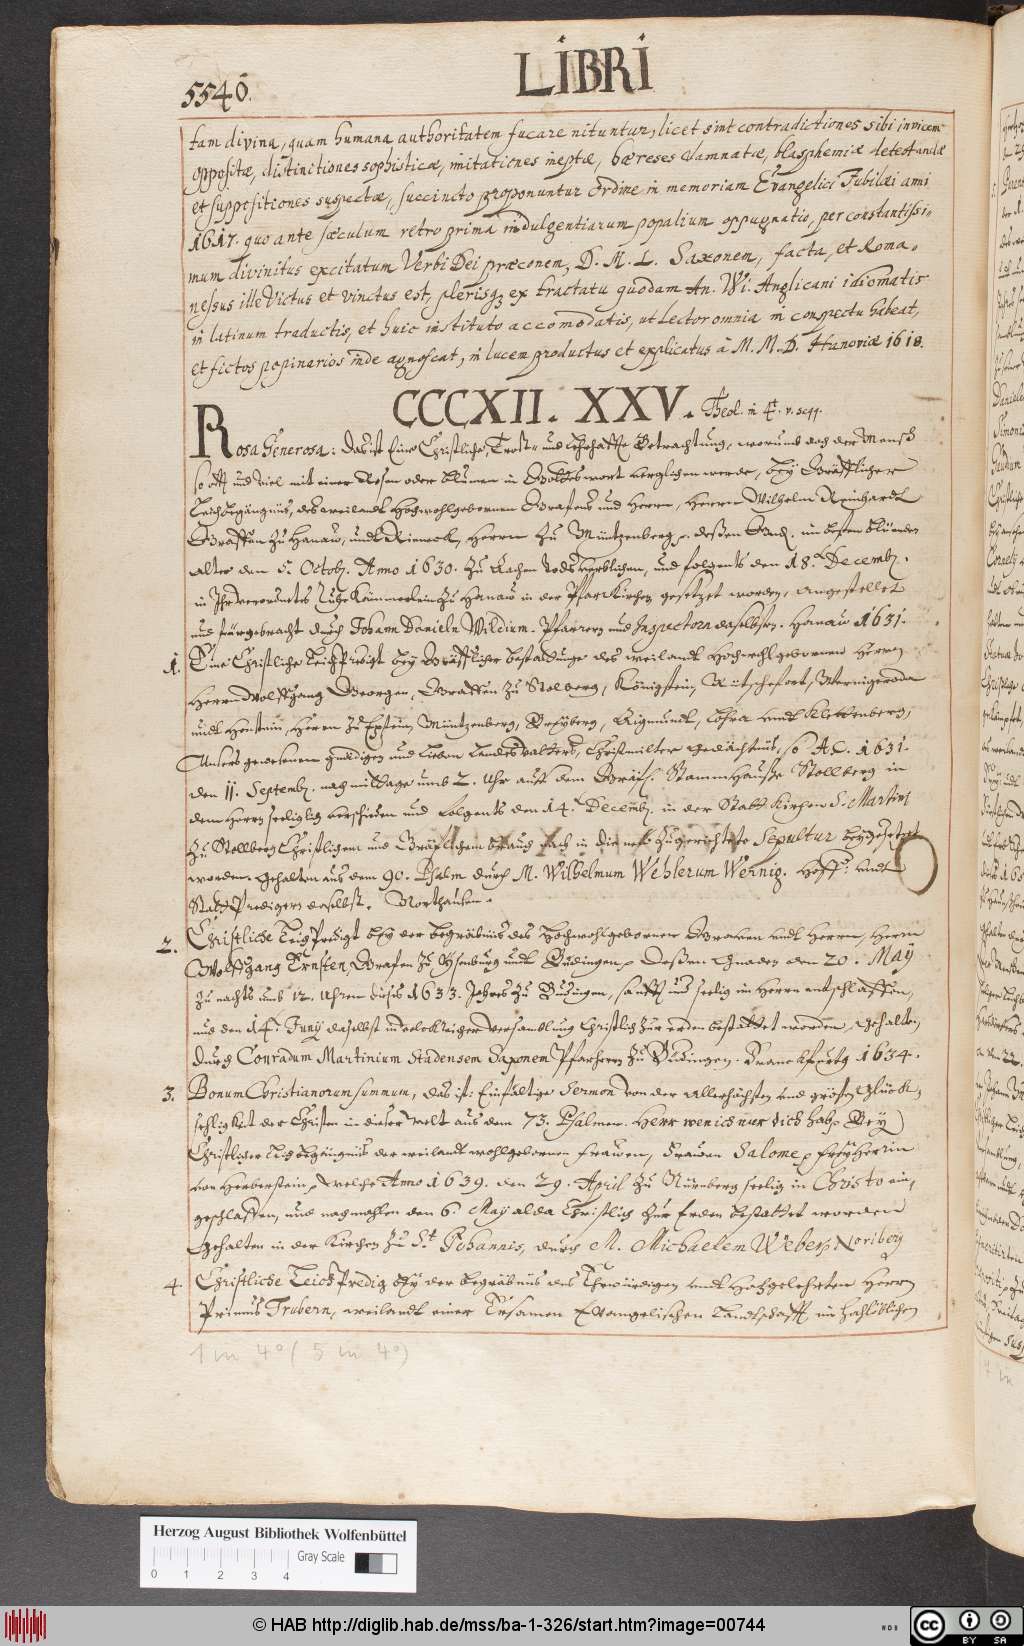 5540.
LIBRI
tam divina, quam humana authoritatem fucare nituntur, licet sint contradictiones sibi invicem
oppositæ, distinitiones sophisticæ, imitationes ineptæ, hæreses damnatæ, blasphemiæ detestandæ
et suppositiones suspectæ, succincto proponuntur ordine in memoriam Evangelici Jubilæi anni
1617. quo ante sæculum retro prima indulgentiarum papalium oppugnatio, per constantissi-
mum divinitus excitatum Verbi Dei præconem, D. M. L. Saxonem, facta, et Roma-
nessus ille Victus et vinctus est, plerisq; ex tractatu quodam An. Wi. Anglicani idiomatis
in latinum traductis, et huic instituto accomodatis, ut Lector omnia in conspectu habeat,
et fictos popinarios inde agnoscat, in lucem productus et explicatus à M. M. D. Hanoviæ 1618.
CCCXII. XXV. Theol. in 4t. v. seqq.
Rosa Generosa: das ist Eine Christliche, Trost- und Lehrhaffte Betrachtung, warumb doch der Mensch
so offt und viel mit einer Rosen oder Blumen in Gottes wort verglichen werde, bey Gräfflicher
Leichbegängnüs, des weilandt Hochwohlgebornen Grafens und Herrn, Herrn Wilhelm Reinhardt
Graffen zu Hanaw, undt Rieneck, Herrn zu Müntzenberg, deßen Gnd. im besten blüenden
alter den 5. Octob. Anno 1630. zu Aachen Todts verblichen, und folgents den 18. Decemb.
in Ihr verordnetes Ruhe Kämmerlein zu Hanaw in der Pfar Kirchen gesetzet worden, angestellet
und fürgebracht durch Johann Danieln Wildium. Pfarrern und Inspectorn daselbsten. Hanaw 1631.
1. Eine Christliche Leich Predigt bey Gräfflicher bestattunge des weilandt Hochwohlgebornen Herrn
Herrn Wolffgang Georgen, Graffen zu Stolberg, Königstein, Rütschefort, Wernigeroda
undt Honstein, Herrn zu Epstein, Müntzenberg, Breuberg, Aigmundt, Lohra undt Klettenberg,
Unsers gewesenen gnädigen und Lieben Landes Vatters, Christmilter gedächtnüs, so A.C. 1631.
den 11. Septemb. nach mittage umb 2. Uhr auff dem Gräfl. StammHauße Stollberg in
dem Herrn seeliglich verschieden und folgents den 14. Decemb. in der Statt Kirchen S. Martini
zu Stollberg Christlichem und Gräfflichem brauch nach in die new zugerichtete Sepultur beygesetzet
worden. gehalten aus dem 90. Psalm durch M. Wilhelmum Wehlerum Wernig. Hoff: undt
Stadt Predigern daselbst. Northausen.
2. Christliche LeigPredigt bey der begräbnis des Hochwohlgebornen Grafen undt Herrn, Herrn
Wolffgang Ernsten, Grafen zu Ysenburg undt Büdingen, deßen Gnaden den 20. May
zu nachts umb 12. Uhren dieses 1633. Jahres zu Büdingen, sanfft und seelig im Herrn entschlaffen,
und den 14. Junij daselbst in volckreicher versamblung Christlich zur erden bestattet worden, gehalten
durch Conradum Martinium Stadensem Saxonem Pfarherrn zu Büdingen. Franckfurtg 1634.
3. Bonum Christianorum summum, das ist: Einfältige Sermon von der allerhöchsten und grösten glück-
sehligkeit der Christen in dieser welt aus dem 73. Psalmen. Herr wenich nur dich hab. Bey
Christlicher Leichbegängnüs der weilandt wohlgebornen frawen, Frawen Salome, freyherrin
von Herberstein, welche Anno 1639. den 29. April zu Nürnberg seelig in Christo ein-
geschlaffen, und nachmahlen den 6. May alda Christlich zur Erden bestattet worden
Gehalten in der Kirchen zu St. Johannis, durch M. Michaelem Weber, Noriberg
4. Christliche Leich Predig bey der begräbnüs des Ehrwürdigen undt Hochgelehrten Herrn
Primus Trubern, weilandt einer Ersamen Evangelischen Landtschafft im hochlöblichen
1 in 4° (5 in 4°)
Herzog August Bibliothek Wolfenbüttel
Gray Scale
0 1 2 3 4
© HAB http://diglib.hab.de/mss/ba-1-326/start.htm?image=00744
WDB
CC BY SA